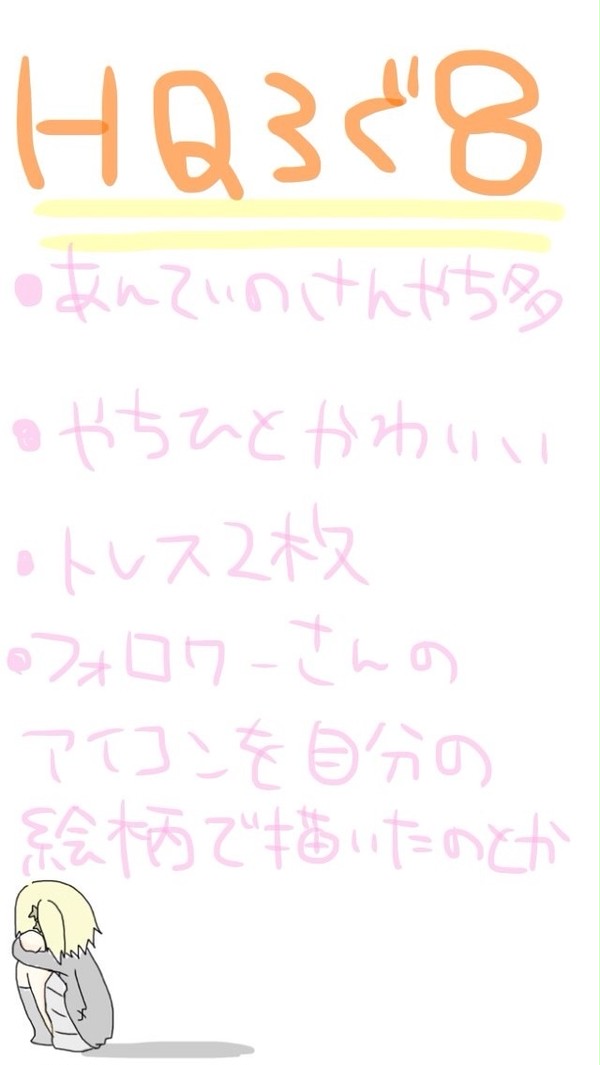 HQろぐ8
●あんていのけんやち多
●やちひとかわいい
●トレス2枚
●フォロワーさんの
アイコンを自分の
絵柄で描いたのとか